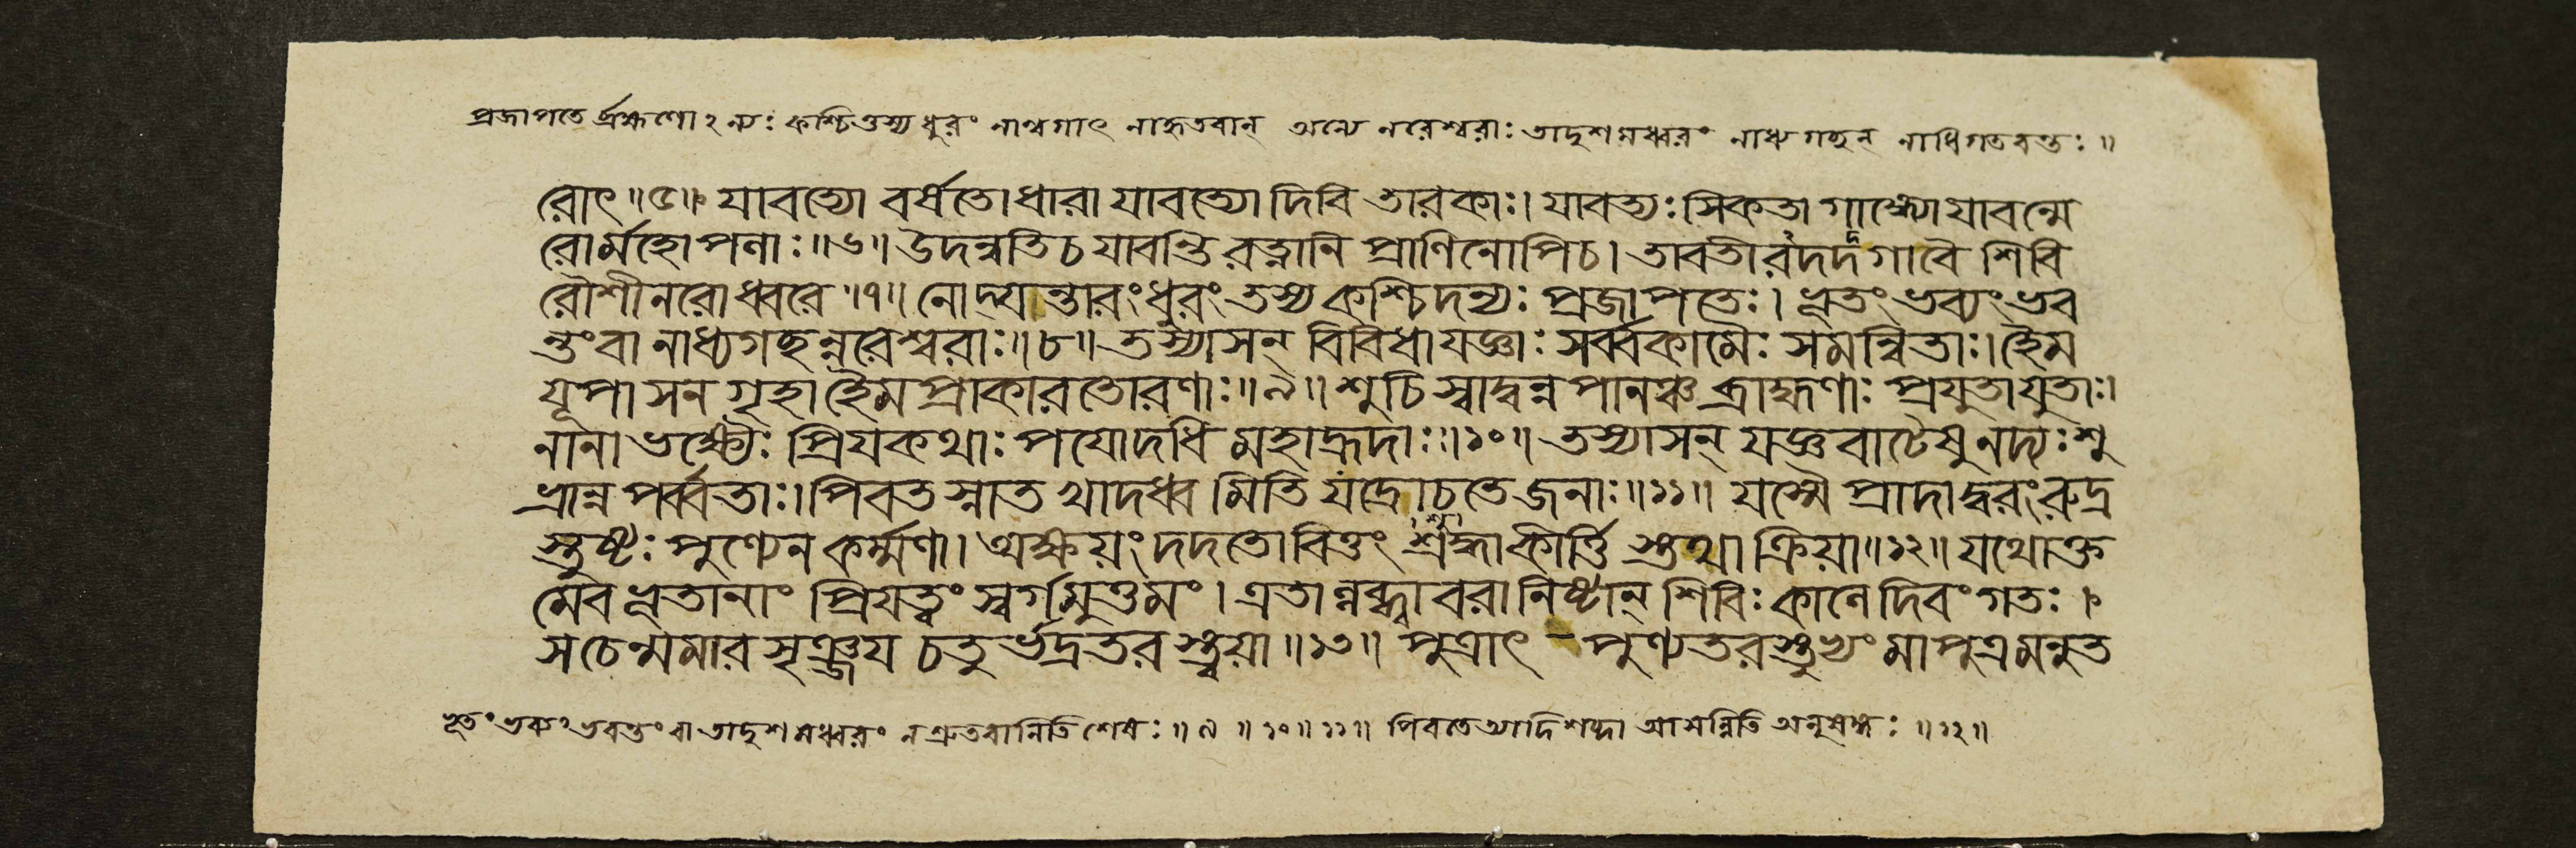 প্রজাপতের্ব্রহ্মণোঽন্যঃ কশ্চিত্তস্য ধুরং নাধ্বগাৎ নাহৃতবান্ অন্যে নরেশ্বরাঃ তাদৃশমধ্বরং নাধ্যগছন্ নাধিগতবন্তঃ ॥
রোৎ ॥৫॥ যাবত্যো বর্ষতোধারা যাবত্যো দিবি তারকাঃ। যাবত্যঃ সিকতা গাঙ্গ্যো যাবন্মে
রোর্মহোপলাঃ ॥৬॥ উদন্বতি চ যাবন্তি রত্নানি প্রাণিনোপিচ। তাবতীরদদদ্গাবৈ শিবি
রৌশীনরোধ্বরে ॥৭॥ নোদ্যন্তারং ধুরং তস্য কশ্চিদন্যঃ প্রজাপতেঃ। ভূতং ভব্যং ভব
ন্তং বা নাধ্যগছন্নরেশ্বরাঃ ॥৮॥ তস্যাসন্ বিবিধা যজ্ঞাঃ সর্ব্বকামৈঃ সমন্বিতাঃ। হৈম
যূপাসন গৃহা হৈমপ্রাকারতোরণাঃ ॥৯॥ শুচি স্বাদ্বন্নপানঞ্চ ব্রাহ্মণাঃ প্রযুতাযুতাঃ।
নানাভক্ষ্যৈঃ প্রিযকথাঃ পযোদধি মহাহ্রদাঃ ॥১০॥ তস্যাসন্ যজ্ঞবাটেষু নদ্যঃ শু
ভ্রান্ন পর্ব্বতাঃ। পিবত স্নাত খাদধ্ব মিতি যদ্রোচতে জনাঃ ॥১১॥ যস্মৈ প্রাদাদ্বরং রুদ্র
স্তুষ্টঃ পুণ্যেন কর্ম্মণা। অক্ষয়ং দদতো বিত্তং শ্রদ্ধা কীর্ত্তি স্তথা ক্রিয়া ॥১২॥ যথোক্ত
মেব ভূতানাং প্রিযত্বং স্বর্গমুত্তমং। এতান্লব্ধ্বা বরানিষ্টান্ শিবিঃ কালে দিবং গতঃ।
স চেন্মমার সৃঞ্জয চতুর্ভদ্রতর স্ত্বয়া ॥১৩॥ পুত্রাৎ পুণ্যতরস্তুভ্যং মা পুত্রমনুত
ভূতং ভব্যং ভবন্তং বা তাদৃশমধ্বরং ন শ্রুতবানিতি শেষঃ ॥৯॥১০॥১১॥ পিবতেত্যাদিশব্দা আসন্নিতি অনুষঙ্গঃ ॥১২॥